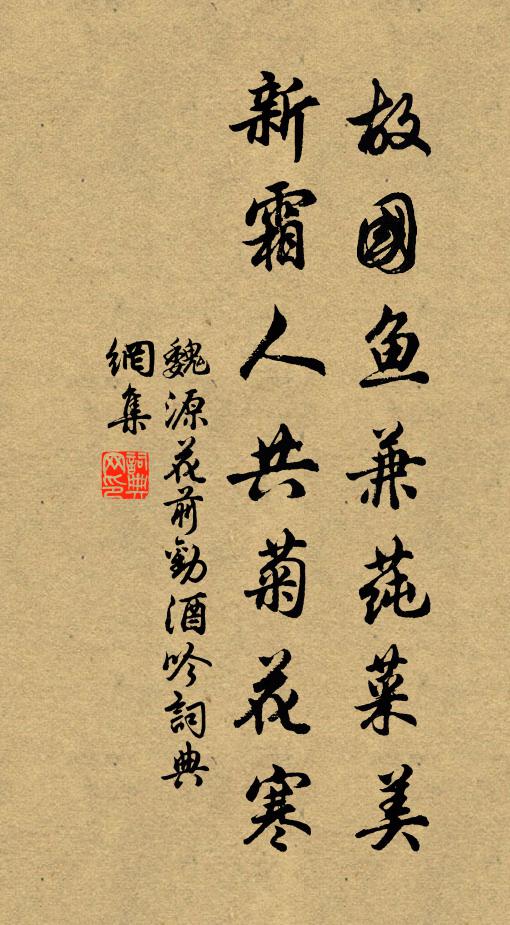 故國鱼兼莼菜美
新霜人共菊花寒
魏源花前勸酒吟詞典
網集
詞典
网印